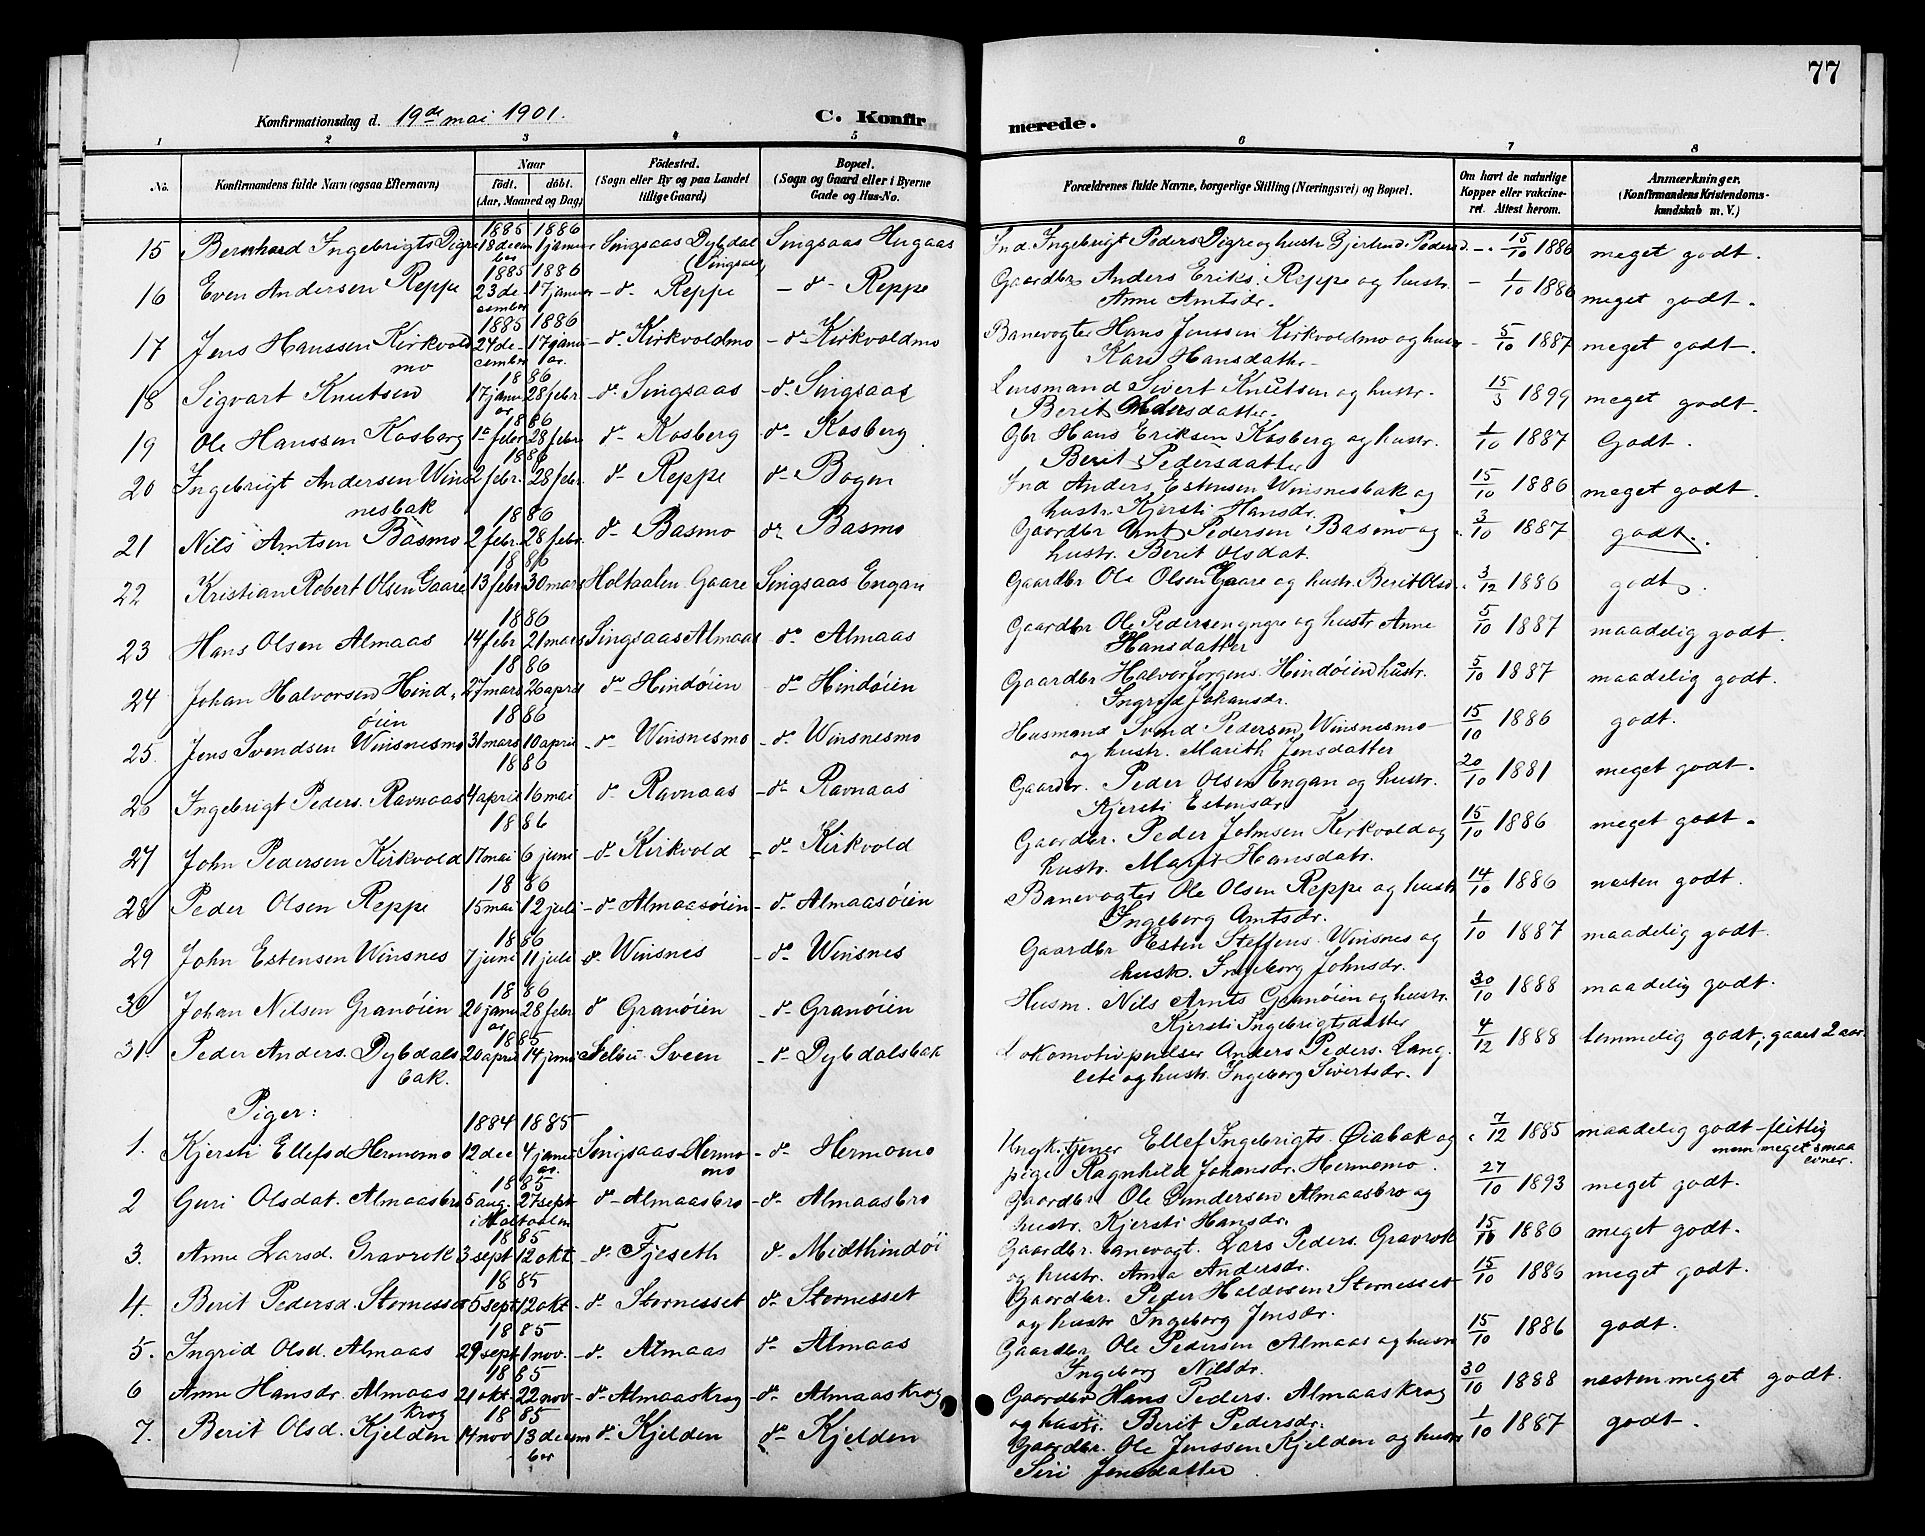 77
Konfirmationsdag d. 19de mai 1901.
C. Konfirmerede.
1 2 3 4 5 6 7 8
No. Konfirmandens fulde Navn (ogsaa Efternavn) Naar födt. döbt. (Aar, Maaned og Dag) Födested. (Sogn eller By og paa Landet tillige Gaard) Bopæl. (Sogn og Gaard eller i Byerne Gade og Hus-No.
Forældrenes fulde Navne, borgerlige Stilling (Næringsvei) og Bopæl. Om havt de naturlige Kopper eller vakcineret. Attest herom. Anmærkninger. (Konfirmandens Kristendomskundskab m. V.)
15 Bernhard Ingebrigts Digre 1885 18 december 1886 1 januar Singsaas Dybdal (Singsaas) Singsaas Hugaas Ind. Ingebrigt Peders Digre og hustr. Gjertrud Pedersd. 15/10 1886 meget godt.
16 Even Andersen Reppe 1885 23 december 1886 17 januar - do - Reppe - do - Reppe Gaardbr Anders Eriks. Reppe og hustr. Anne Arntsdr. 1/10 1886 meget godt.
17 Jens Hanssen Kirkvoldmo 1885 24 december 1886 17 januar - do Kirkvoldmo - do Kirkvoldmo Banevogter Hans Jenssen Kirkvoldmo og hustr Kari Hansdatter 5/10 1887 meget godt.
18 Sigvart Knutsen 1886 17 januar 28 febr - do Singsaas - do Singsaas Lensmand Sivert Knutsen og hustr. Berit Andersdatter. 15/3 1899 meget godt.
19 Ole Hanssen Kosberg 1886 1ste febr 28 febr do - Kosberg do - Kosberg Gbr Hans Eriksen Kosberg og hustr. Berit Pedersdatter 1/10 1887 Godt.
20 Ingebrigt Andersen Winsnesbak 1886 2 febr. 28 febr. do - Reppe do - Bogen Ind Anders Estensen Winsnesbak og hustr. Kjersti Hansdr. 15/10 1886 meget godt.
21 Nils Arntsen Basmo 1886 2 febr. 28 febr. do - Basmo do - Basmo Gaardbr Arnt Pedersen Basmo og hustr. Berit Olsdat. 3/10 1887 godt.
22 Kristian Robert Olsen Gaare 1886 13 febr 30 mars Holtaalen Gaare Singsaas Engan Gaardbr Ole Olsen Gaare og hustr. Berit Olsd. 3/12 1886 godt.
23 Hans Olsen Almaas 1886 14 febr 21 mars Singsaas Almaas do - Almaas Gaardbr Ole Pedersen yngre og hustr Anne Hansdatter 5/10 1887 maadelig godt.
24 Johan Halvorsen Hindöien 1886 27 mars 26 april do - Hindöien do - Hindöien Gaardbr Halvor Jørgens. Hindöien hustr. Ingrid Johansdr. 5/10 1887 maadelig godt.
25. Jens Svendsen Winsnesmo 1886 31 mars 10 april - do - Winsnesmo - do. Winsnesmo Husmand Svend Pedersen Winsnesmo og hustr. Marith Jensdatter 15/10 1886 godt.
26 Ingebrigt Peders. Ravnaas 1886 4 april 16 mai do - Ravnaas - do - Ravnaas Gaardbr. Peder Olsen Engan og hustr. Kjersti Estensdr 20/10 1881 meget godt.
27 John Pedersen Kirkvold 1886 17 mai 6 juni - do - Kirkvold - do - Kirkvold Gaardbr. Peder Johnsen Kirkvold og hustr. Marit Hansdatr. 15/10 1886 meget godt.
28 Peder Olsen Reppe 1886 15 mai 12 juli - do - Almaasöien - do - Almaasöien Banevogter Ole Olsen Reppe og hustr Ingeborg Arntsdr. 14/10 1886 næsten godt.
29 John Estensen Winsnes 1886 7 juni 11 juli do. Winsnes - do - Winsnes Gaardbr Esten Steffens. Winsnes og hustr. Ingeborg Johnsdr. 1/10 1887 maadelig godt.
30 Johan Nilsen Granöien 1886 20 januar 28 febr do Granöien - do - Granöien Husm. Nils Arnts Granöien og hustr. Kjersti Ingebrigtsdatter 30/10 1888 maadelig godt.
31. Peder Anders. Dybdalsbak. 1885 20 april 14 juni Selbu. Sveen - do - Dybdalsbak Lokomotivpudser Anders Peders. Langlete og hustr. Ingeborg Sivertsdr. 4/12 1888 temmelig godt; gaaet 2 aar.
Piger:
1. Kjersti Ellefsd Hermomo 1884 12 dec 1885 4 januar. Singsaas Hermomo - do - Hermomo Ungk. tjener Ellef Ingebrigts. Øiabak og pige Ragnhild Johansdr. Hermomo. 7/12 1885 maadelig godt - flittig men meget smaa evner.
2 Guri Olsdat. Almaasbro 1885 5 aug. 27 sept i Holtaalen do - Almaasbro - do - Almaasbro Gaardbr Ole Gundersen Almaasbro og hustr. Kjersti Hansdr. 27/10 1893 meget godt.
3. Anne Larsd. Gravrok 1885 3 sept 12 okt - do - Fjeseth do - Midthindöi Gaardbr. banevogt. Lars Peders. Gravrok og hustr. Anna Andersdr. 15/10 1886 meget godt.
4. Berit Pedersd. Stornesset 1885 5 sept 12 okt. - do. Stornesset do - Stornesset Gaardbr. Peder Haldosen Stornesset og hustr Ingeborg Jensdr. 15/10 1886 meget godt.
5. Ingrid Olsd. Almaas 1885 29 sept 1 nov. - do. Almaas do - Almaas Gaardbr Ole Pedersen Almaas og hustr Ingeborg Nilsdr. 15/10 1886 godt.
6 Anne Hansdr. Almaaskrog 1885 21 okt. 22 nov - do - Almaaskrog - do - Almaaskrog Gaardbr Hans Peders. Almaaskrog og hustr. Berit Pedersdr. 30/10 1888 næsten meget godt.
7. Berit Olsd. Kjelden 1885 14 nov 13 december do - Kjelden do - Kjelden Gaardbr. Ole Jenssen Kjelden og hustr Siri Jensdatter 1/10 1887 godt.